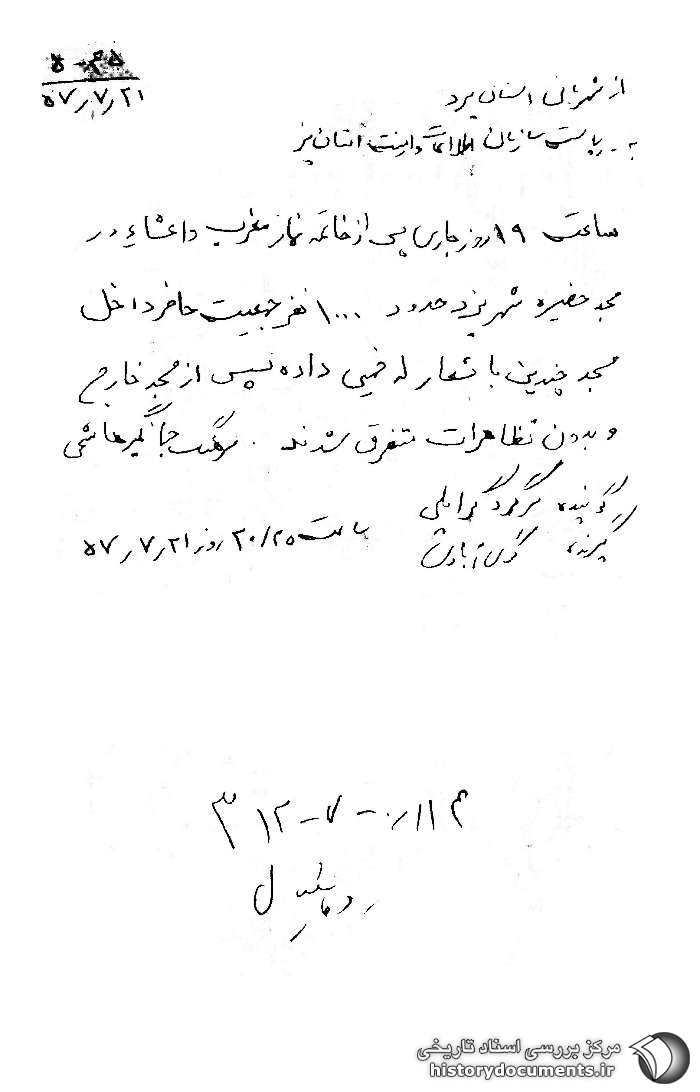 ۵۰-۴۵
۵۷٫۷٫۲۱
از شهربانی استان یزد
به ریاست سازمان اطلاعات و امنیت استان یزد
ساعت ۱۹ روز جاری پس از خاتمه نماز مغرب و اعشاء در
مسجد حضیره شهر یزد حدود ۱۰۰۰ نفر جمعیت حاضر داخل
مسجد چندین با شعار له خمینی داده سپس از مسجد خارج
و بدون تظاهرات متفرق شدند. سرهنگ جهانگیر هاشمی
گوینده سرگرد گرایلی
گیرنده ساعت ۲۰/۲۵ روز ۵۷٫۷٫۲۱
۳۱۲-۷-
مرکز بررسی اسناد تاریخی
historydocuments.ir